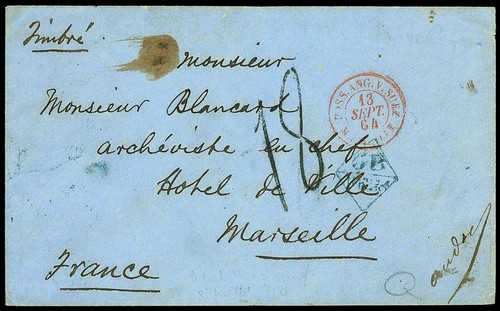 Timbré
Monsieur
Monsieur Blancard
archéviste en chef
Hotel de Ville
Marseille
France
18
POSS. ANG. V. SUEZ
13
SEPT.
64
GB